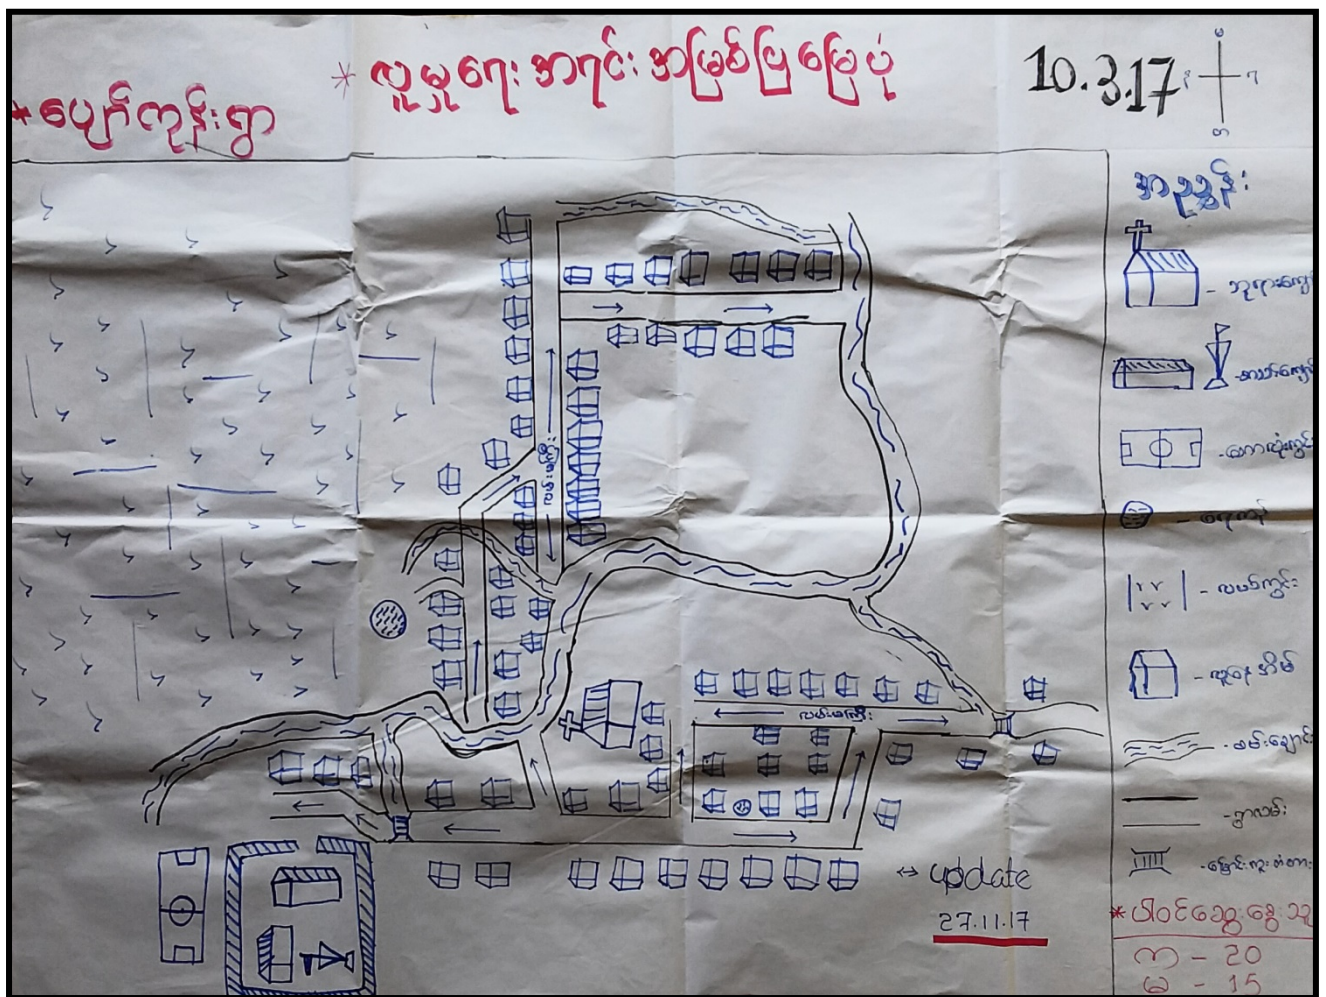 * လူမှုရေး အရင်း အမြစ်ပြ မြေပုံ
10.3.17
* ပျော်ကုန်းရွာ
အညွှန်း
- ဘုရားကျော
- စာသင်ကျော
- ဘောလုံးကွင်း
- ရေကန်
- လယ်ကွင်း
- လူနေအိမ်
- စမ်းချောင်း
- ရွာလမ်း
- ချောင်းကူးတံတား
လမ်းမကြီး
လမ်းမကြီး
↔ update
27.11.17
* ပါဝင်ဆွေးနွေးသူ
က - 20
မ - 15